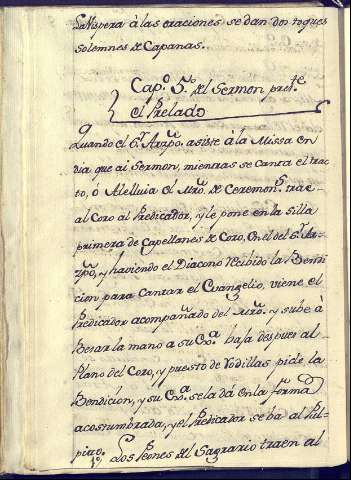 La Vispera à las oraciones se dan dos toques
solemnes de Capanas.
Capº. 5º. del Sermon preste.
el Prelado
Quando el Sr. Arzpo. asiste à la Missa en
dia que ai Sermon, mientras se canta el trac
to, ò Alelluia el Mro. de Ceremons. trae
al Coro al Predicador, y le pone en la Silla
primera de Capellanes de Coro, en el del Sr. Ar-
zpo, y haviendo el Diacono recibido la Bendi
cion para cantar el Evangelio, viene el
Predicador acompañado del Mro. y sube à
Besar la mano a su Exa. baja despues al
Plano del Coro, y puesto de rodillas pide la
Bendicion, y su Exa. se la dà en la forma
acostumbrada, y el Predicador se ba al Pul-
pito. Los Peones del Sagrario traen al